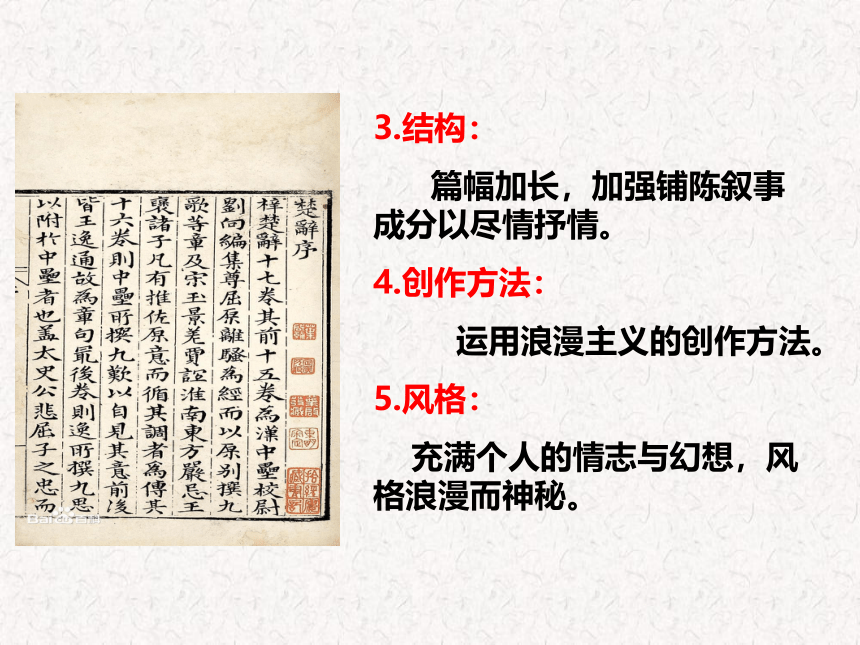 楚辭序
梓楚辭十七卷其前十五卷為漢中壘校尉
劉向編集尊屈原離騷為經而以原別撰九
歌等章及宋玉景差賈誼淮南東方嚴忌王
襃諸子凡有推佐原意而循其調者為傳其
十六卷則中壘所撰九歎以自見其意前後
皆王逸通故為章句最後卷則逸所撰九思
以附於中壘者也盖太史公悲屈子之忠而
Baidu百科
3.结构：
篇幅加长，加强铺陈叙事
成分以尽情抒情。
4.创作方法：
运用浪漫主义的创作方法。
5.风格：
充满个人的情志与幻想，风
格浪漫而神秘。